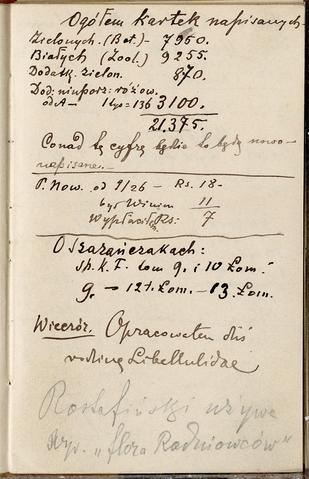 Ogółem kartek napisanych
Zielonych. (Bot.) - 7950.
Białych (Zool.) 9255.
Dodatk. zielon. 870.
Dod: nieuporz: różow.
od A - 1 lps = 136 3100.
21.375.
Ponad tę cyfrę będzie to będą nowo-
napisane.-
P. Now. od 9/26 - Rs. 18-
był Winien 11
Wypłaciłem Rs: 7
O Szarańczakach:
sp. k. F. tom 9. i 10 Łom.
9. - 12 t. Łom. - 13. Łom.
Wieczór. Opracowałem dziś
rodzinę Libellulidae
Rostafiński używa
wyr. „flora Rodniowców"